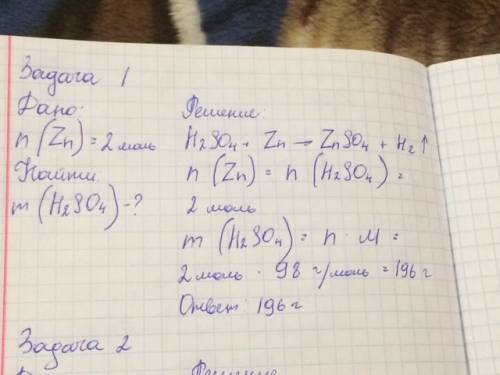 Задача 1
Дано:
n (Zn) = 2 моль
Найти
m (H₂SO₄) - ?
Решение:
H₂SO₄ + Zn → ZnSO₄ + H₂↑
n (Zn) = n (H₂SO₄) =
2 моль
m (H₂SO₄) = n · M =
2 моль · 98 г/моль = 196 г
Ответ: 196 г
Задача 2
Решение